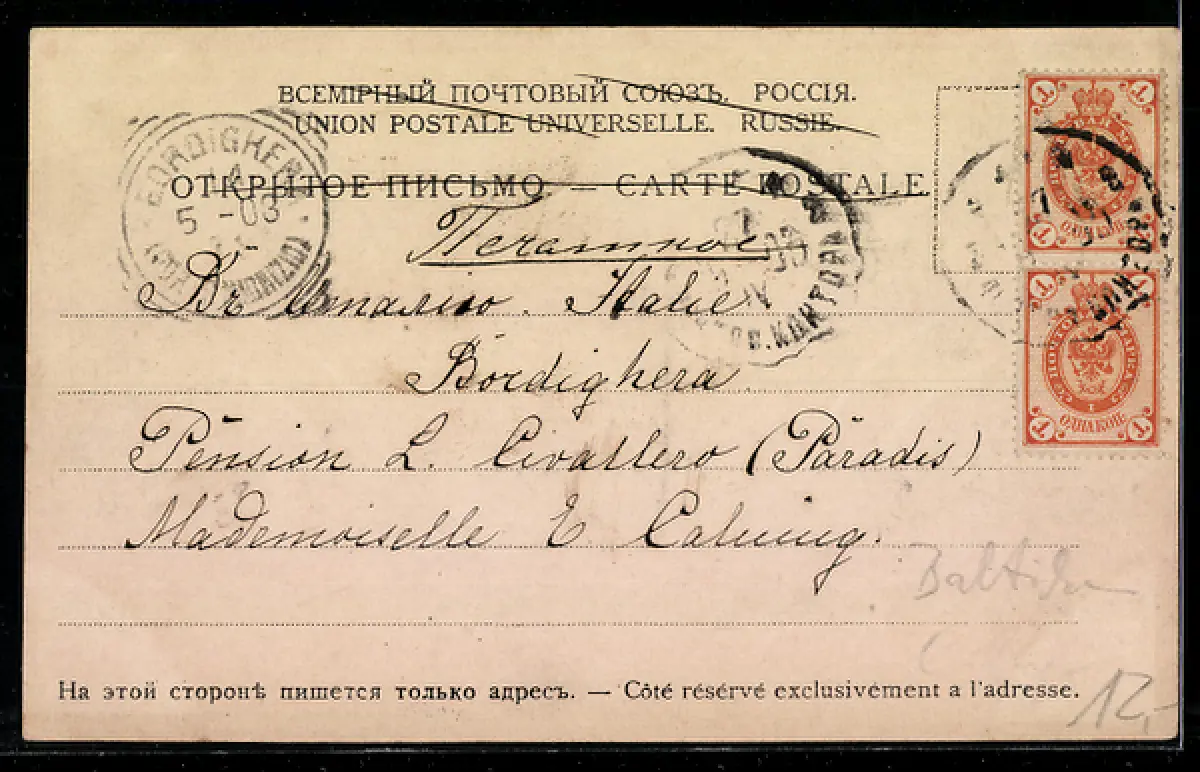 ВСЕМІРНЫЙ ПОЧТОВЫЙ СОЮЗЪ. РОССІЯ.
UNION POSTALE UNIVERSELLE. RUSSIE.
ОТКРЫТОЕ ПИСЬМО — CARTE POSTALE
BORDIGHERA
5 -03
Печатное
Въ Италію. Italie
КОНТОРА
Bordighera
ОДНА КОП.
Pension L. Civallero (Paradis)
ОДНА КОП.
Mademoiselle E. Calning.
На этой сторонѣ пишется только адресъ. — Côté réservé exclusivement a l'adresse.
12,-